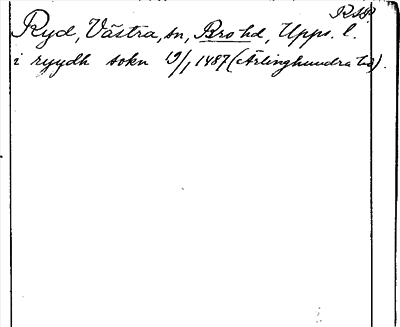 RAP.
Ryd, Västra, sn, Bro hd, Upps. l.
i ryydh sokn 19/1 1487 (Ärlinghundra tb).